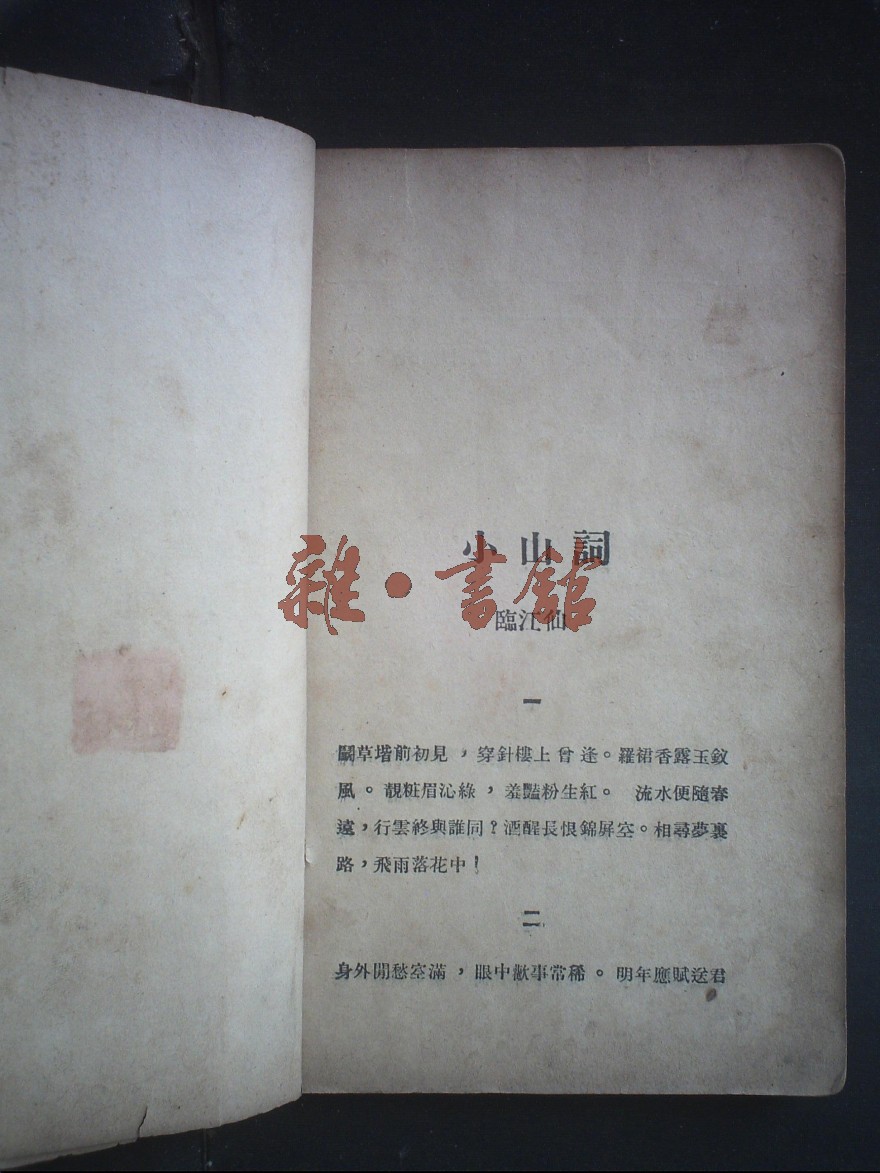 小山詞
雜·書館
臨江仙
一
鬭草堦前初見，穿針樓上曾逢。羅裙香露玉釵
風。靚粧眉沁綠，羞豔粉生紅。　流水便隨春
遠，行雲終與誰同？酒醒長恨錦屏空。相尋夢裏
路，飛雨落花中！
二
身外閒愁空滿，眼中歡事常稀。明年應賦送君